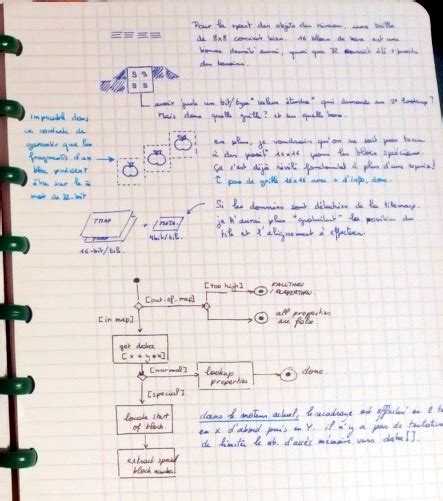 Pour la plupart des objets du niveau, une taille
de 8x8 convient bien. 16 blocs de base est une
bonne densité aussi, quoi que 32 aurait été + proche
des besoins.
avoir juste un bit/type "valeur étendue" qui demande un 2e lookup?
Mais dans quelle grille? et un quelle bonne.
Impossible dans
ce contexte de
garantir que les
fragments d'un
bloc puissent
être sur le
mot de 32-bit
en plus, je voudrais qu'on ne soit pas tenu
à des positions 16x16 pour les blocs spéciaux.
Ça s'est déjà révélé fondamental à plus d'une reprise!
pas de grille 16x16 avec + d'info, donc.
Si les données sont détachées de la tilemap,
je n'aurai plus "gratuitement" la position du
tile et l'alignement à effectuer
TMAP
META
16-bit/tile
4bit/tile
[out_of_map]
[too high]
FALLTHRU
/PLAYERTHRU
[in map]
all properties
are false
get data
[x + y * w]
[normal]
lookup
properties
done
[special]
locate start
of block
extract
block number
dans le moteur actuel, le recadrage est effectué en 2 t
en X d'abord puis en Y. il n'y a pas de tentative
de limiter le nb. d'accès mémoire vers data[].